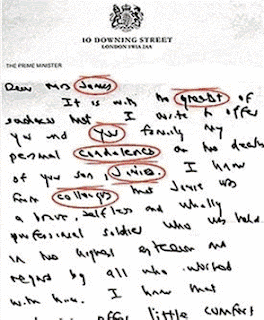 10 DOWNING STREET
LONDON SW1A 2AA
THE PRIME MINISTER
Dear Mrs James
It is with the greatest of
sadness that I write to offer
you and your family my
personal condolences on the death
of your son, Jamie. I know
from colleagus that Jamie was
a brave, selfless and wholly
professional soldier who was held
in the highest esteem and
regard by all who worked
with him. I know that
offer little comfort